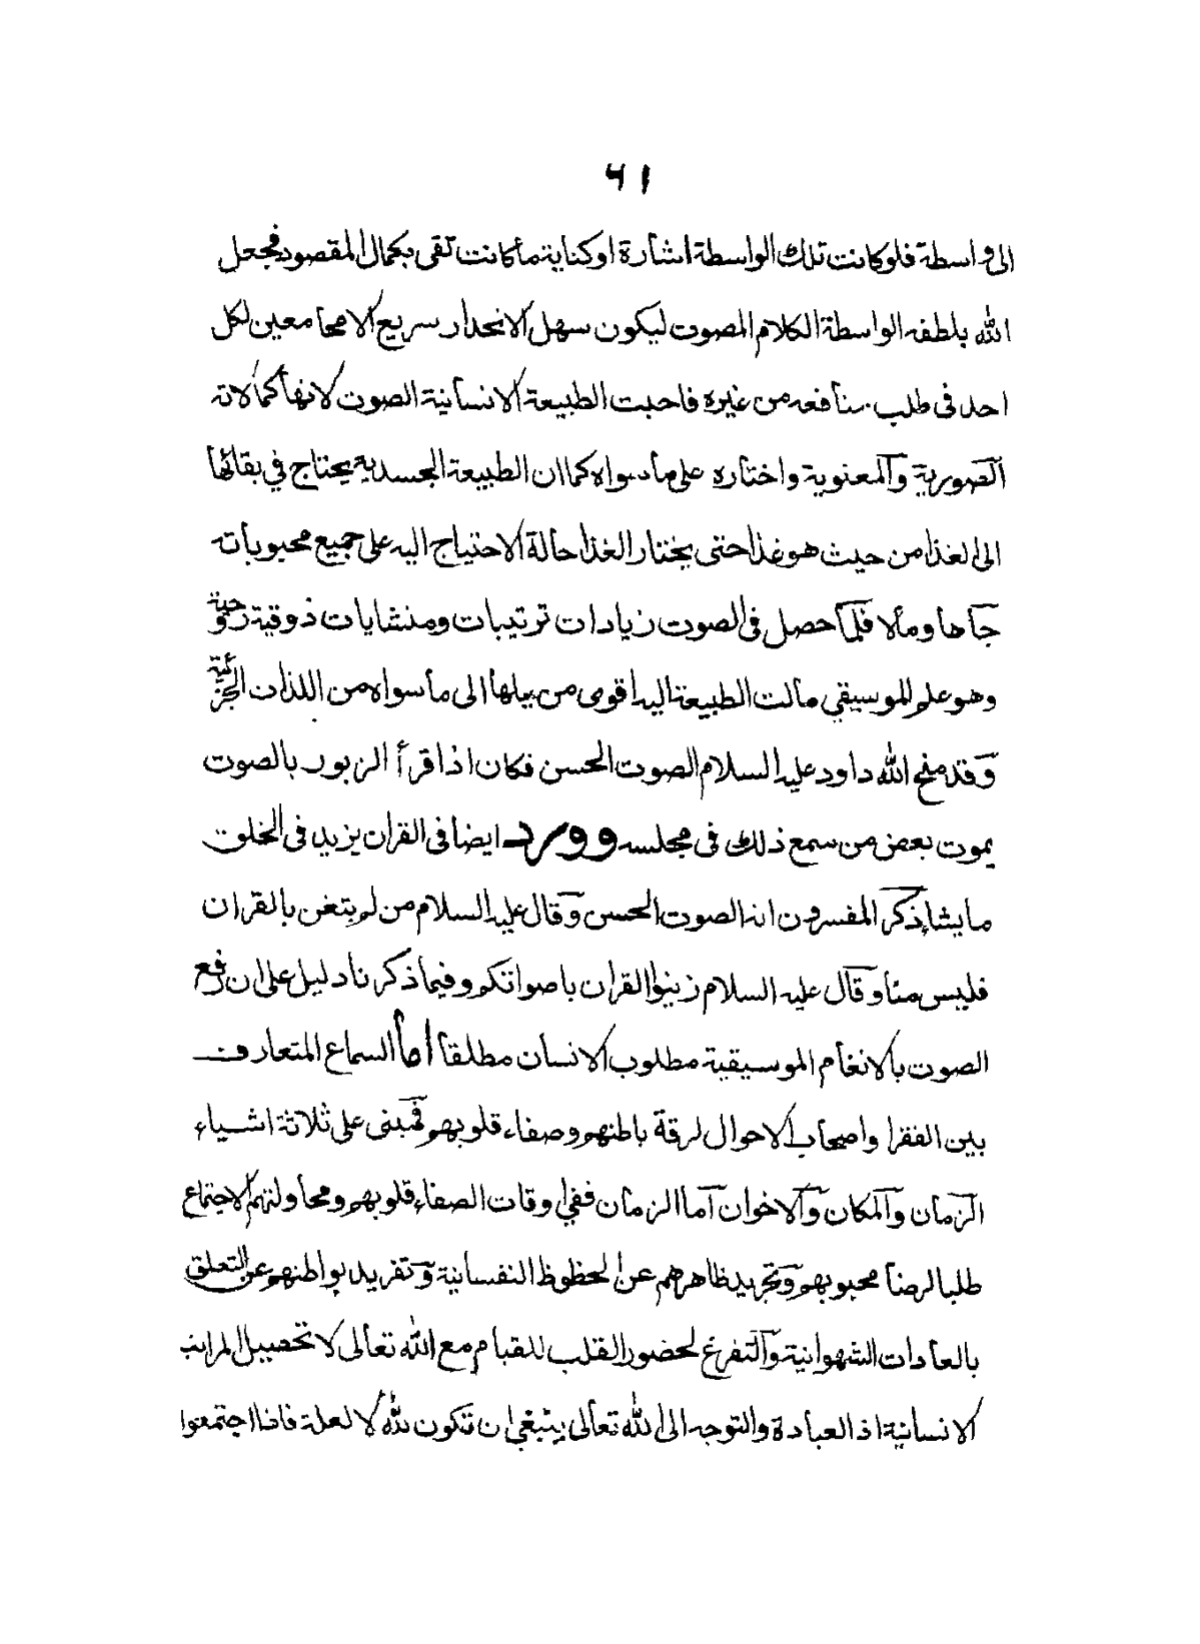 ٦١
الى واسطة فلوكانت تلك الواسطة اشارة اوكناية ماكانت تفى بكمال المقصود فجعل
الله بلطفه الواسطة الكلام المصوت ليكون سهل الانحدار سريع الامحا معين لكل
احد فى طلب منافعه من غيره فاحبت الطبيعة الانسانية الصوت لانها كمالاته
الصورية والمعنوية واختاره على ماسواه كماان الطبيعة الجسدية يحتاج في بقائها
الى الغذا من حيث هو غذا حتى يختار الغذا حالة الاحتياج اليه على جميع محبوباته
جاها ومالا فلما حصل فى الصوت زيادات ترتيبات ومنشايات ذوقية روحية
وهو علم الموسيقي مالت الطبيعة اليه اقوى من ميلها الى ماسواه من اللذات الجزئية
وقد منح الله داود عليه السلام الصوت الحسن فكان اذا قرأ الزبور بالصوت
يموت بعض من سمع ذلك فى مجلسه وورد ايضا فى القران يزيد فى الخلق
مايشاء ذكر المفسرون انه الصوت الحسن وقال عليه السلام من لم يتغن بالقران
فليس منا وقال عليه السلام زينوا القران باصواتكم وفيما ذكرنا دليل على ان رفع
الصوت بالانغام الموسيقية مطلوب الانسان مطلقا أما السماع المتعارف
بين الفقرا واصحاب الاحوال لرقة باطنهم وصفاء قلوبهم فمبنى على ثلاثة اشياء
الزمان والمكان والاخوان اما الزمان ففي اوقات الصفاء قلوبهم ومحاولتهم الاجتماع
طلبا لرضا محبوبهم وتجريد ظاهرهم عن الحظوظ النفسانية وتفريد بواطنهم عن التعلق
بالعادات الشهوانية والتفرغ لحضور القلب للقيام مع الله تعالى لا تحصيل المراتب
الانسانية اذ العبادة والتوجه الى الله تعالى ينبغي ان تكون لله لا لعلة فاذا اجتمعوا